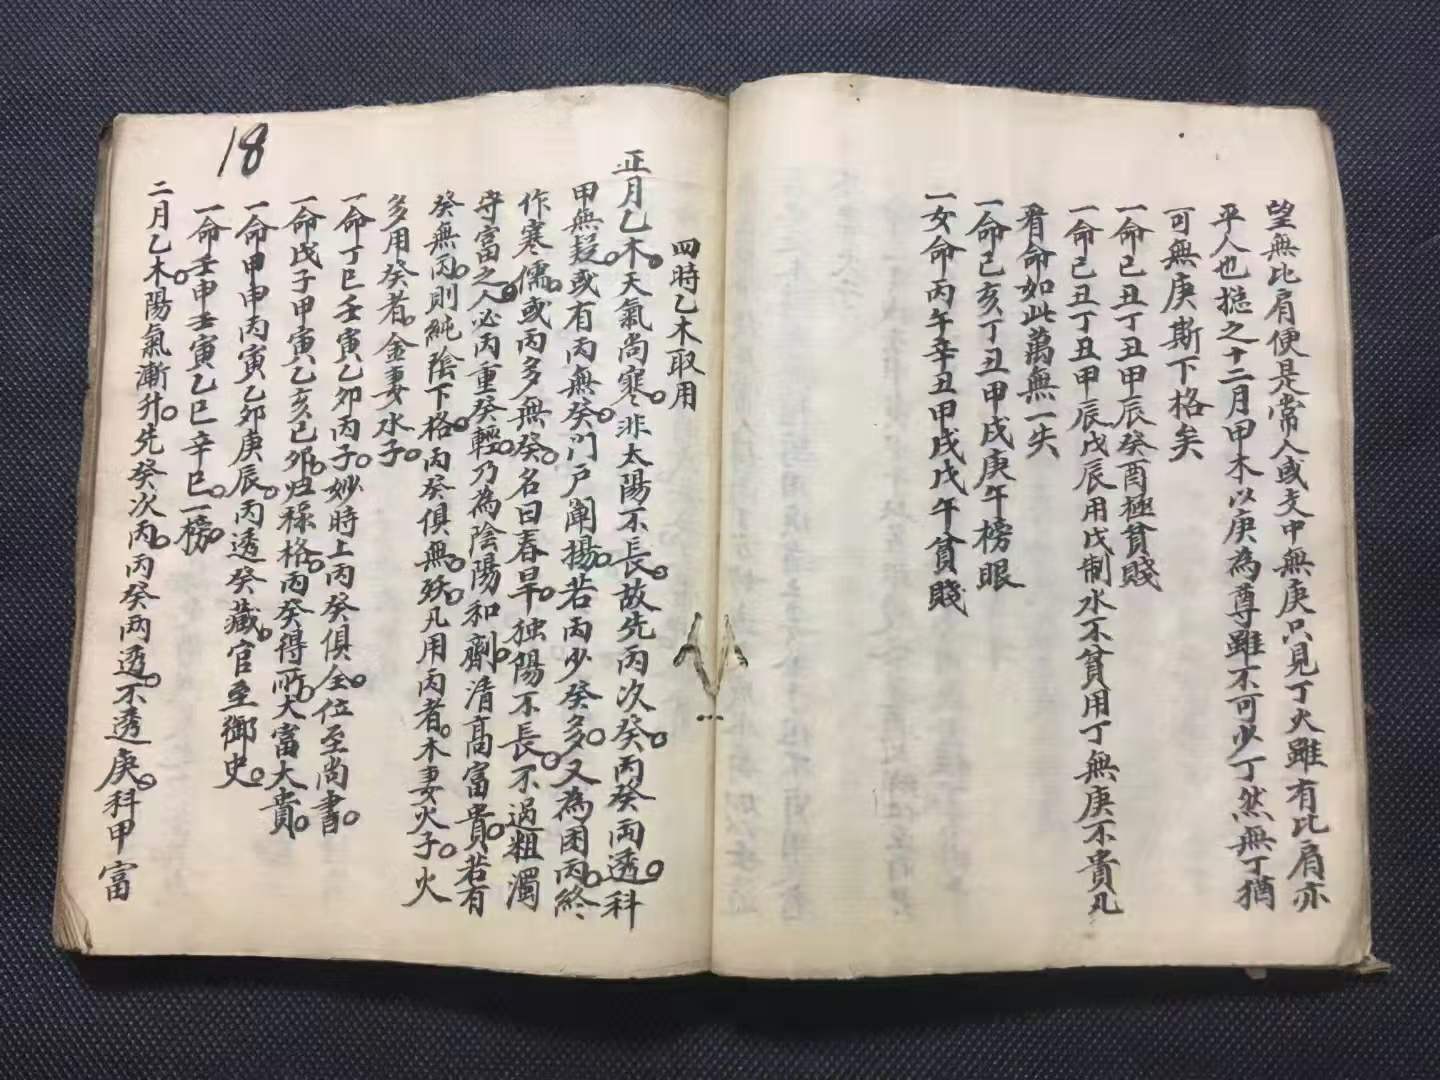 望無比肩便是常人或支中無庚只見丁火雖有比肩亦
平人也搃之十二月甲木以庚為尊雖不可少丁然無丁猶
可無庚斯下格矣
一命己丑丁丑甲辰癸酉極貧賤
一命己丑丁丑甲辰戊辰用戊制水不貧用丁無庚不貴凡
看命如此萬無一失
一命己亥丁丑甲戌庚午榜眼
一女命丙午辛丑甲戌戊午貧賤
四時乙木取用
正月乙木。天氣尚寒。非太陽不長。故先丙次癸。丙癸兩透。科
甲無疑。或有丙無癸。门户闡揚。若丙少癸多。又為困丙。終
作寒儒。或丙多無癸。名曰春旱。独陽不長。不過粗濁
守富之人。必丙重癸輕。乃為陰陽和劑。清高富貴。若有
癸無丙。則純陰下格。丙癸俱無。殀。凡用丙者。木妻火子。火
多用癸者。金妻水子。
一命丁巳壬寅乙卯丙子。妙時上丙癸俱全。位至尚書。
一命戊子甲寅乙亥己卯。归禄格。丙癸得所。大富大貴。
一命甲申丙寅乙卯庚辰。丙透癸藏。官至御史。
一命壬申壬寅乙巳辛巳。一榜。
二月乙木。陽氣漸升。先癸次丙。丙癸两透。不透庚。科甲富
18